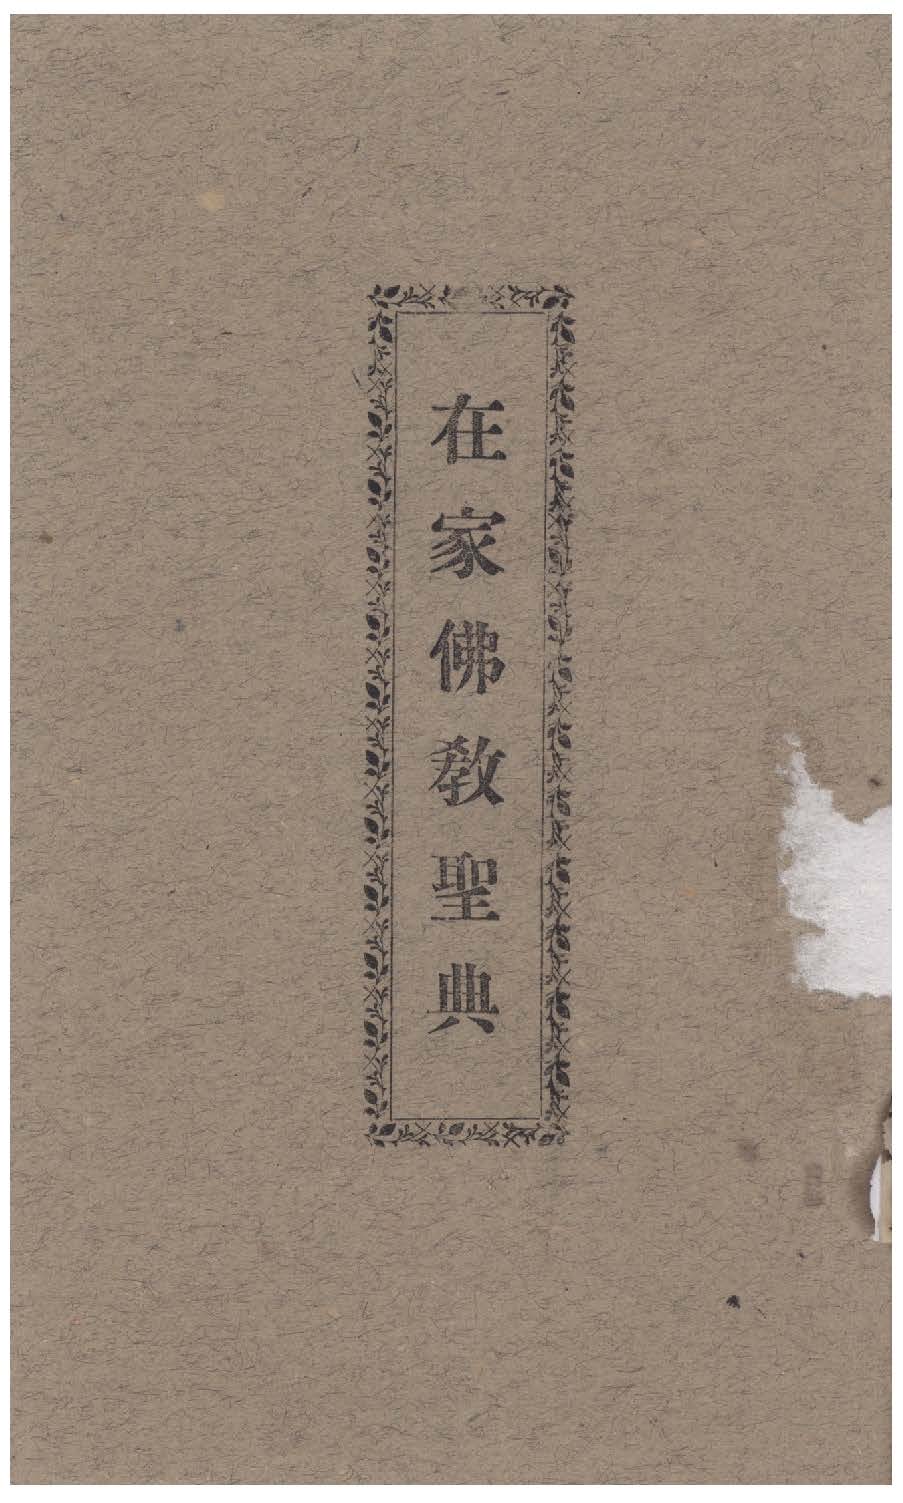 在家佛教聖典